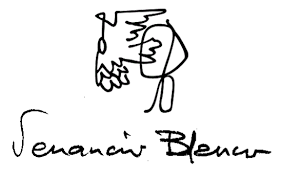 Venancio Blanco